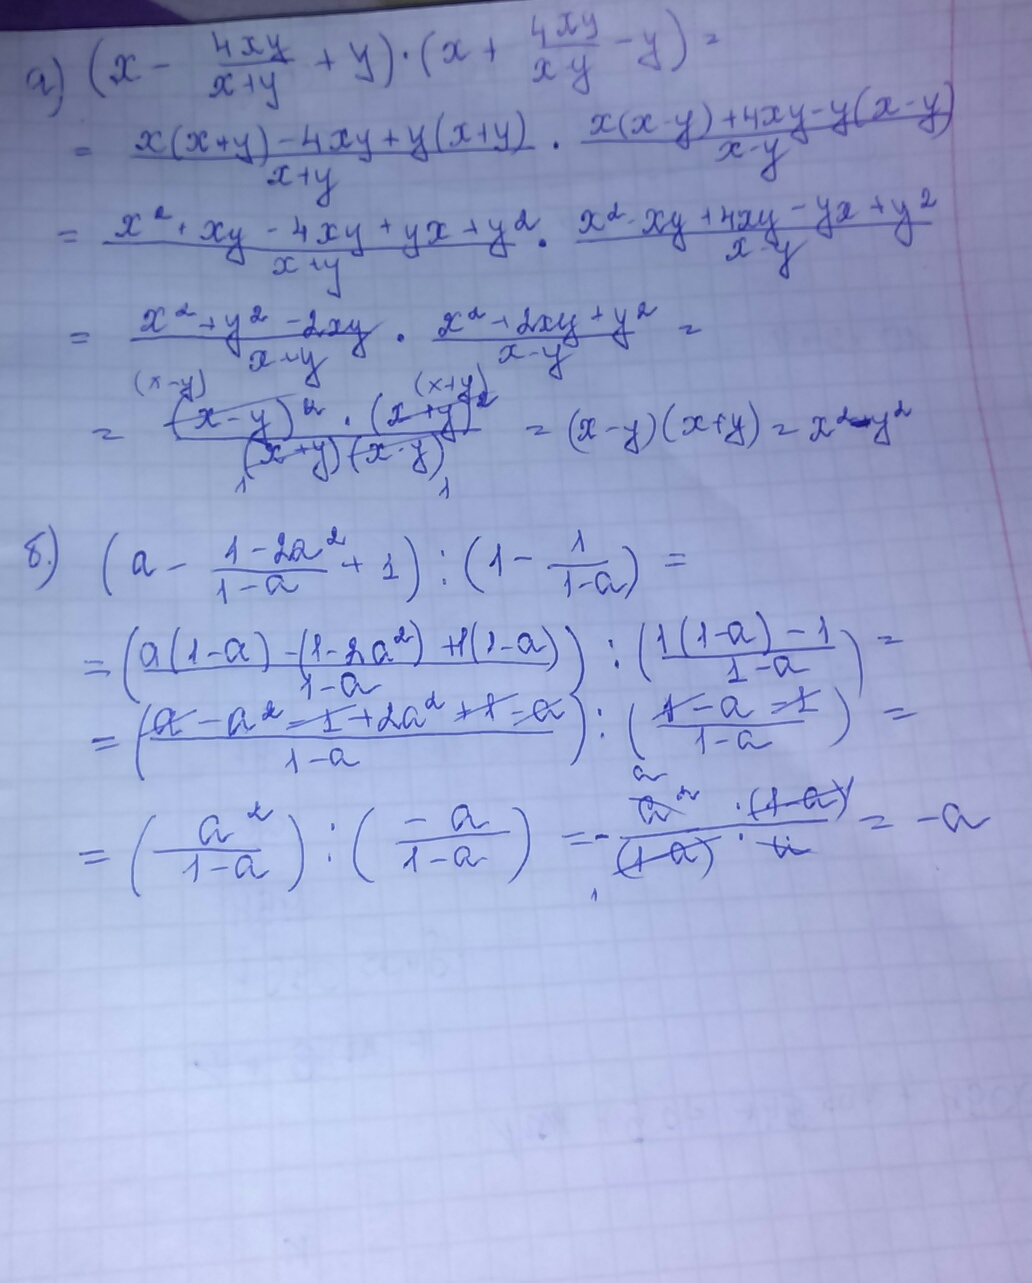 а) (x - 4xy/(x+y) + y)·(x + 4xy/(x-y) - y) =
= (x(x+y) - 4xy + y(x+y))/(x+y) · (x(x-y) + 4xy - y(x-y))/(x-y)
= (x² + xy - 4xy + yx + y²)/(x+y) · (x² - xy + 4xy - yx + y²)/(x-y)
= (x² + y² - 2xy)/(x+y) · (x² + 2xy + y²)/(x-y) =
(x-y) (x+y)
= ((x-y)² · (x+y)²)/((x+y)(x-y)) = (x-y)(x+y) = x² - y²
1 1
б.) (a - (1-2a²)/(1-a) + 1) : (1 - 1/(1-a)) =
= ((a(1-a) - (1-2a²) + 1(1-a))/(1-a)) : ((1(1-a) - 1)/(1-a)) =
= ((a - a² - 1 + 2a² + 1 - a)/(1-a)) : ((1 - a - 1)/(1-a)) =
a
= (a²/(1-a)) : (-a/(1-a)) = - (a² · (1-a))/((1-a) · a) = -a
1